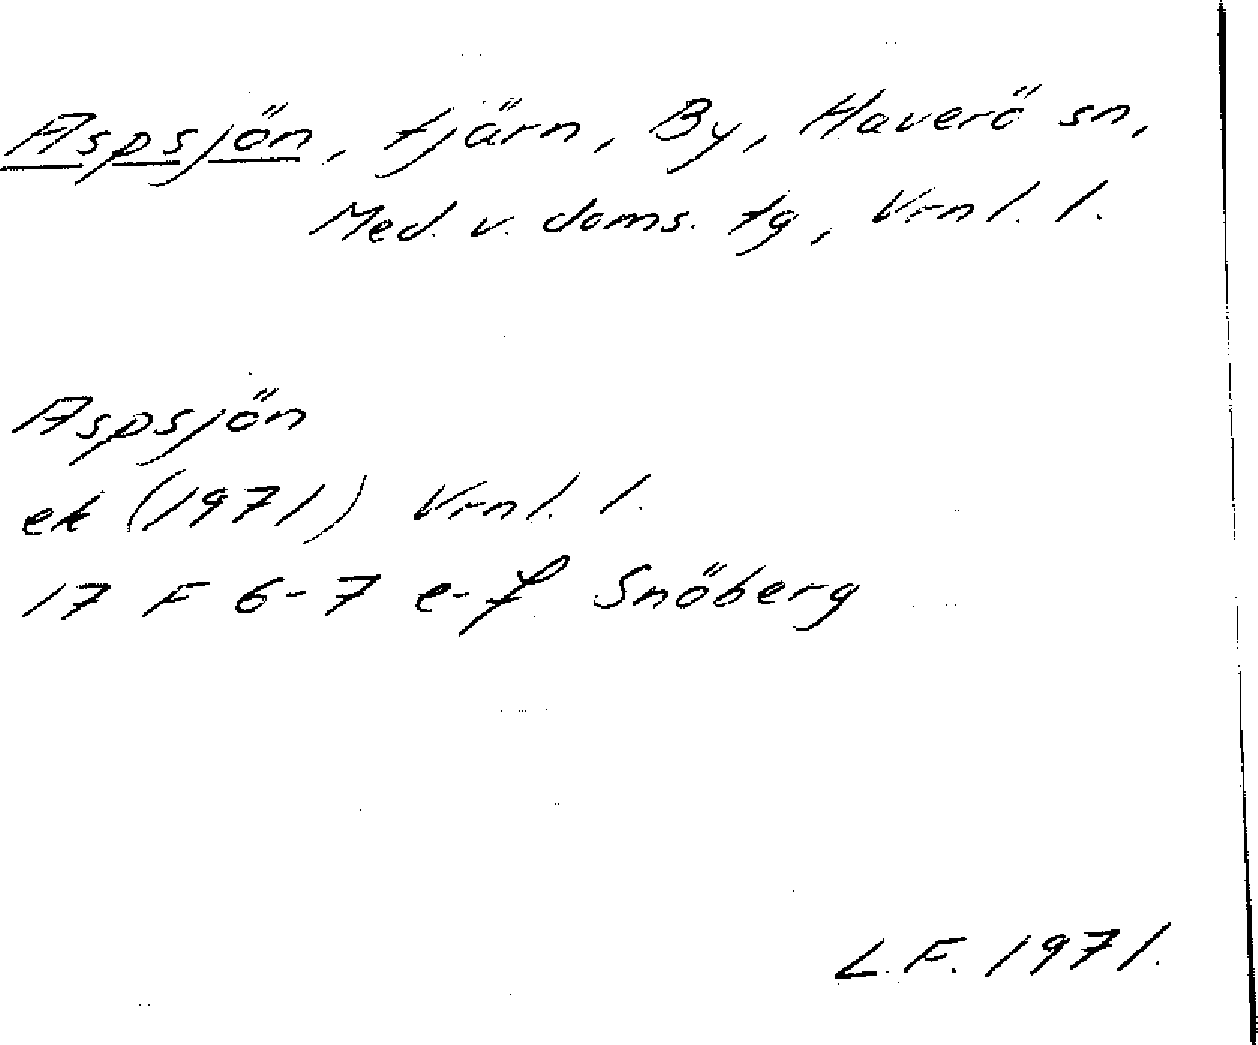 Aspsjön, tjärn, By, Haverö sn,
Med. v. doms. tg, Vrnl. l.
Aspsjön
ek (1971) Vrnl. l.
17 F 6-7 e-f Snöberg
L.F. 1971.